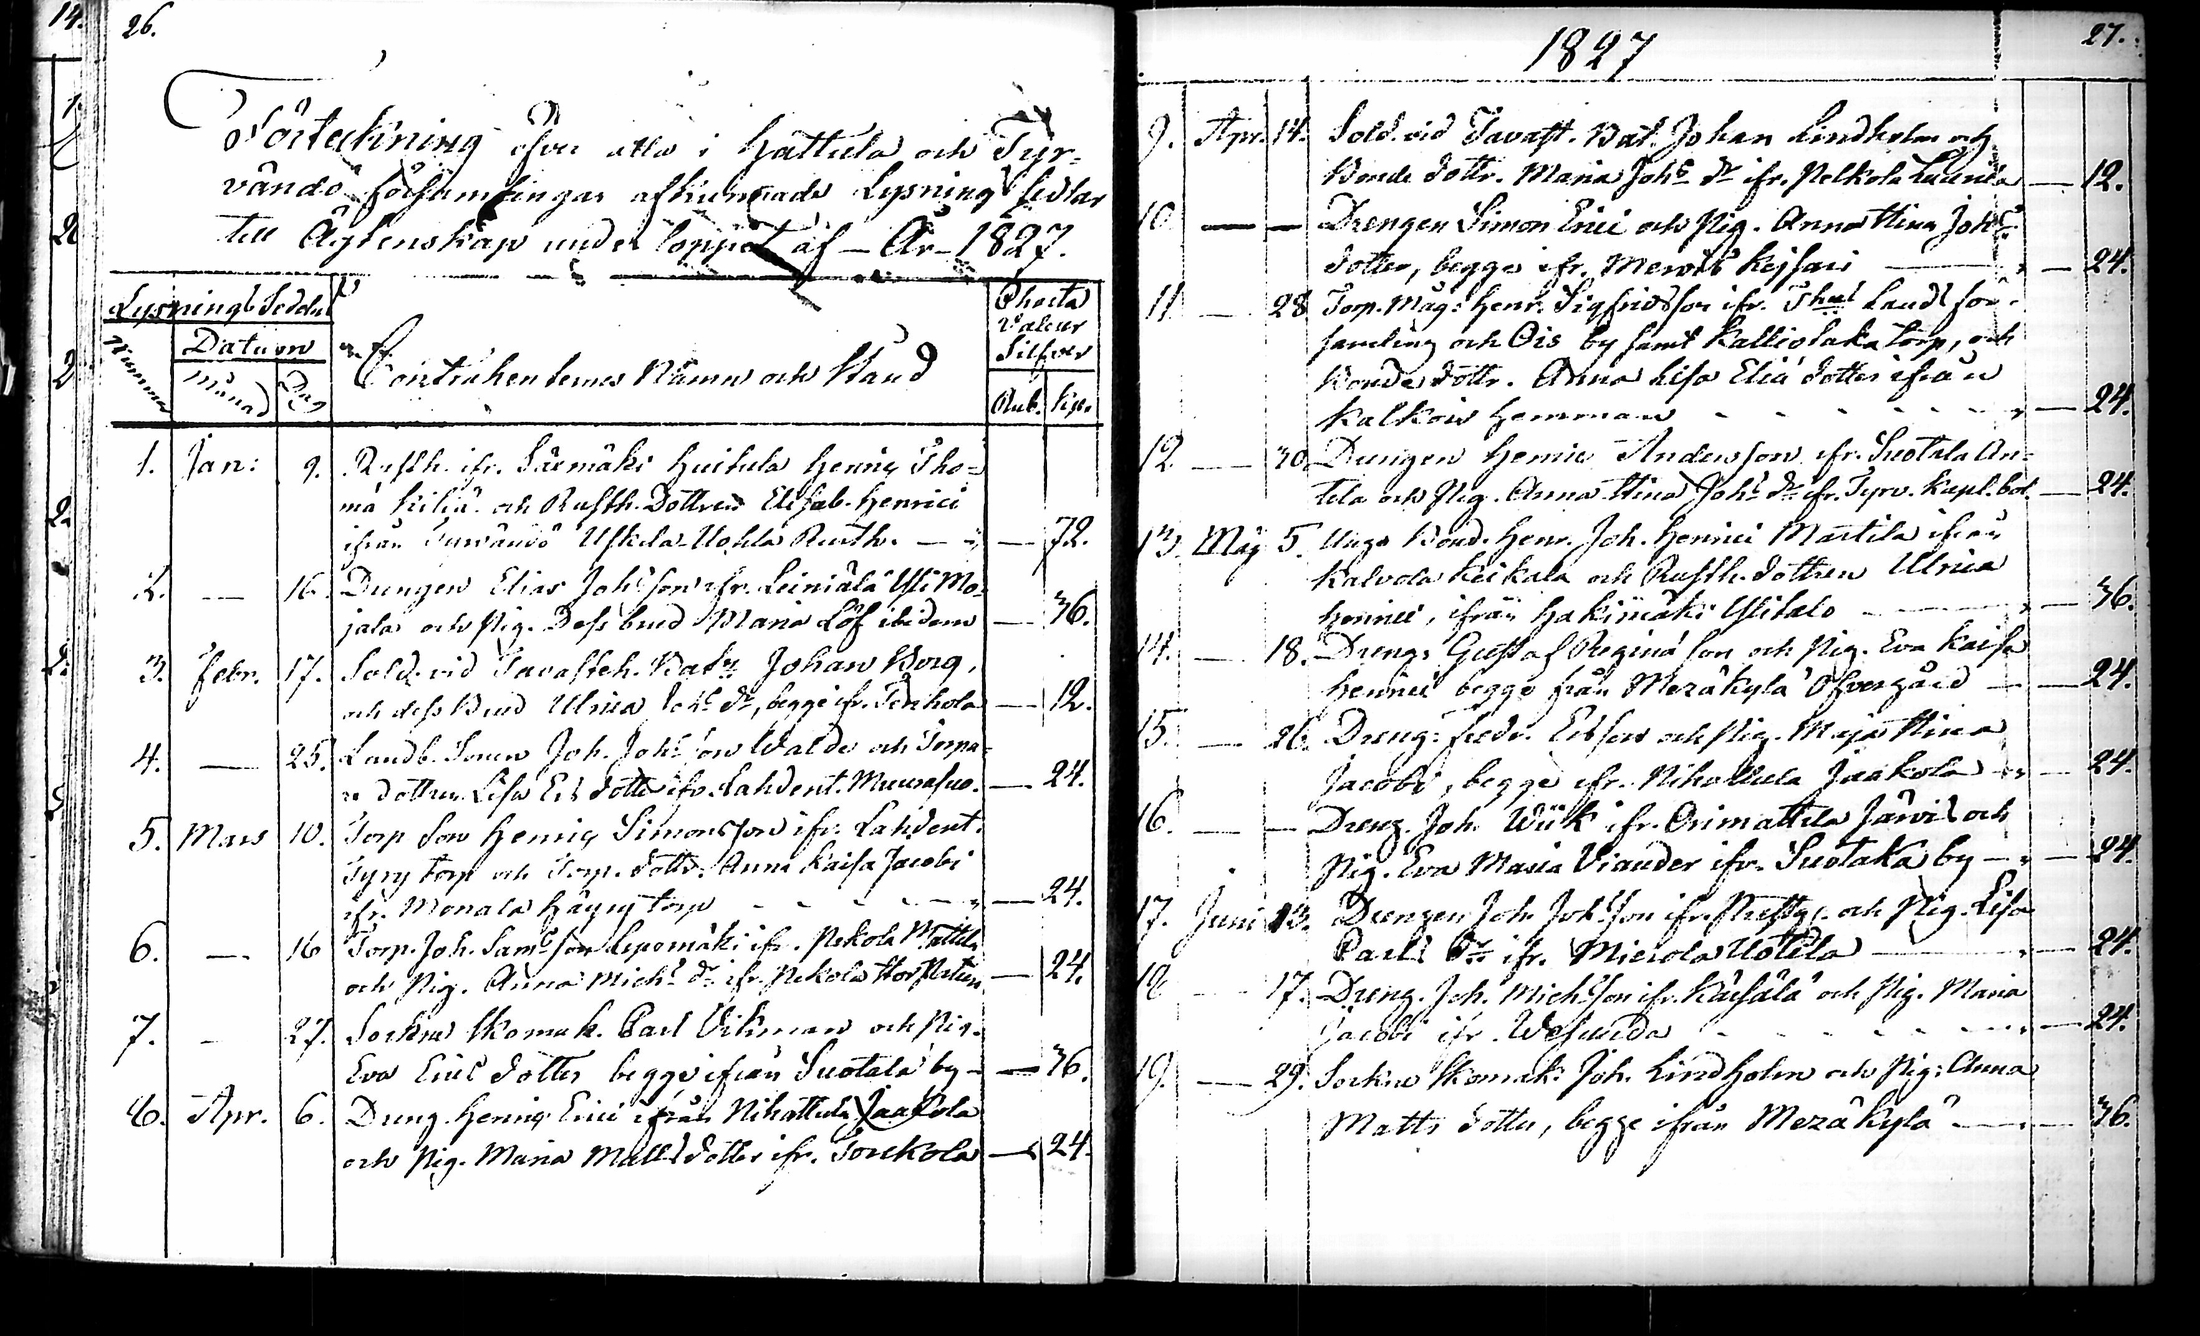 26.
Förteckning öfver alla i Hattula och Tyr-
vändö församlingar afkunnade Lysning sedlar
till Ägtenskap under loppet af - År - 1827.
Lysnings Seddel
Nummer
Datum
Månad
Dag
Contrahenternes Namn och Stånd
Charta
Valeur
Silfver
Rub. Kop.
1. Jan: 9. Rusth. ifr. Särmäki Huitula Henriq Tho-
mä Kiliä och Rusth. Dottren Elisab. Henrici
ifrån Tyrvändö Uskela Uohla Rusth. — 72.
2. — 16. Drengen Elias Johsson ifr. Leiniälä Yli Mo-
jala och Pig. Dess brud Maria Löf ibidem — 36.
3. Febr. 17. Sold. vid Tavasteh. Batn Johan Borg,
och dess Brud Ulrica Johs dr, begge ifr. Tenhola — 12.
4. — 25. Landb. Sonen Joh. Johsson Walde och Torpa-
re dottren Lisa Ers dotter ifr. Lahdent. Muurasuo. — 24.
5. Mars 10. Torp Son Henriq Simonsson ifr. Lahdent.
Tyry torp och Torp. dottr. Anna Kaisa Jacobi
ifr. Monala Häyry torp — 24.
6. — 16 Torp. Joh. Samsson Lepomäki ifr. Pekola Mattila
och Pig. Anna Michs dr ifr. Pekola — 24.
7. — 27. Sockne Skomak. Carl Vikman och Pig.
Eva Erics dotter begge ifrån Suotala by — 36.
8. Apr. 6. Dreng. Henriq Erici ifrån Nihattula Jaakola
och Pig. Maria Matts dotter ifr. Torckola — 24.
1827
27.
9. Apr. 14. Sold. vid Tavast. Bat. Johan Lindholm och
Bonde dottr. Maria Johs dr ifr. Pelkola Laurila — 12.
10. — — Drengen Simon Erici och Pig. Anna Stina Johs
dotter, begge ifr. Mervis Keisari — 24.
11 — 28 Torp. Måg: Henr. Sigfridsson ifr. Thus Lands för-
samling och Ois by samt Kalliolaka torp, och
Bonde dottr. Anna Lisa Eliä dotter ifrån
Kalkois Hemman — 24.
12. — 30 Drengen Henric Andersson ifr. Suotala An-
tila och Pig. Anna Stina Johs dr ifr. Tyrv. Kapl. bol. — 24.
13. Maj 5. Unga Bond. Henr. Joh. Henrici Martila ifrån
Kalvola Keikala och Rusth. dottren Ulrica
Henrici, ifrån Hakimäki Ylitalo — 36.
14. — 18. Dreng: Gustaf Reginä son och Pig. Eva Kaisa
Henrici begge från Meräkylä Öfvergård — 24.
15. — 26. Dreng: Fredr. Ersson och Pig. Maja Stina
Jacobi, begge ifr. Nihattula Jaakola — 24.
16. — — Dreng. Joh. Wiik ifr. Orimattila Järvis och
Pig. Eva Maria Viander ifr. Suotaka by — 24.
17. Juni 13. Drengen Joh. Johsson ifr. Prestg. och Pig. Lisa
Carls Dr ifr. Mierola Uotila — 24.
18 — 17. Dreng. Joh. Michsson ifr. och Pig. Maria
Jacobi ifr. Wesunda — 24.
19. — 29. Sockne Skomak: Joh. Lindholm och Pig: Anna
Matts dotter, begge ifrån Meräkylä — 36.